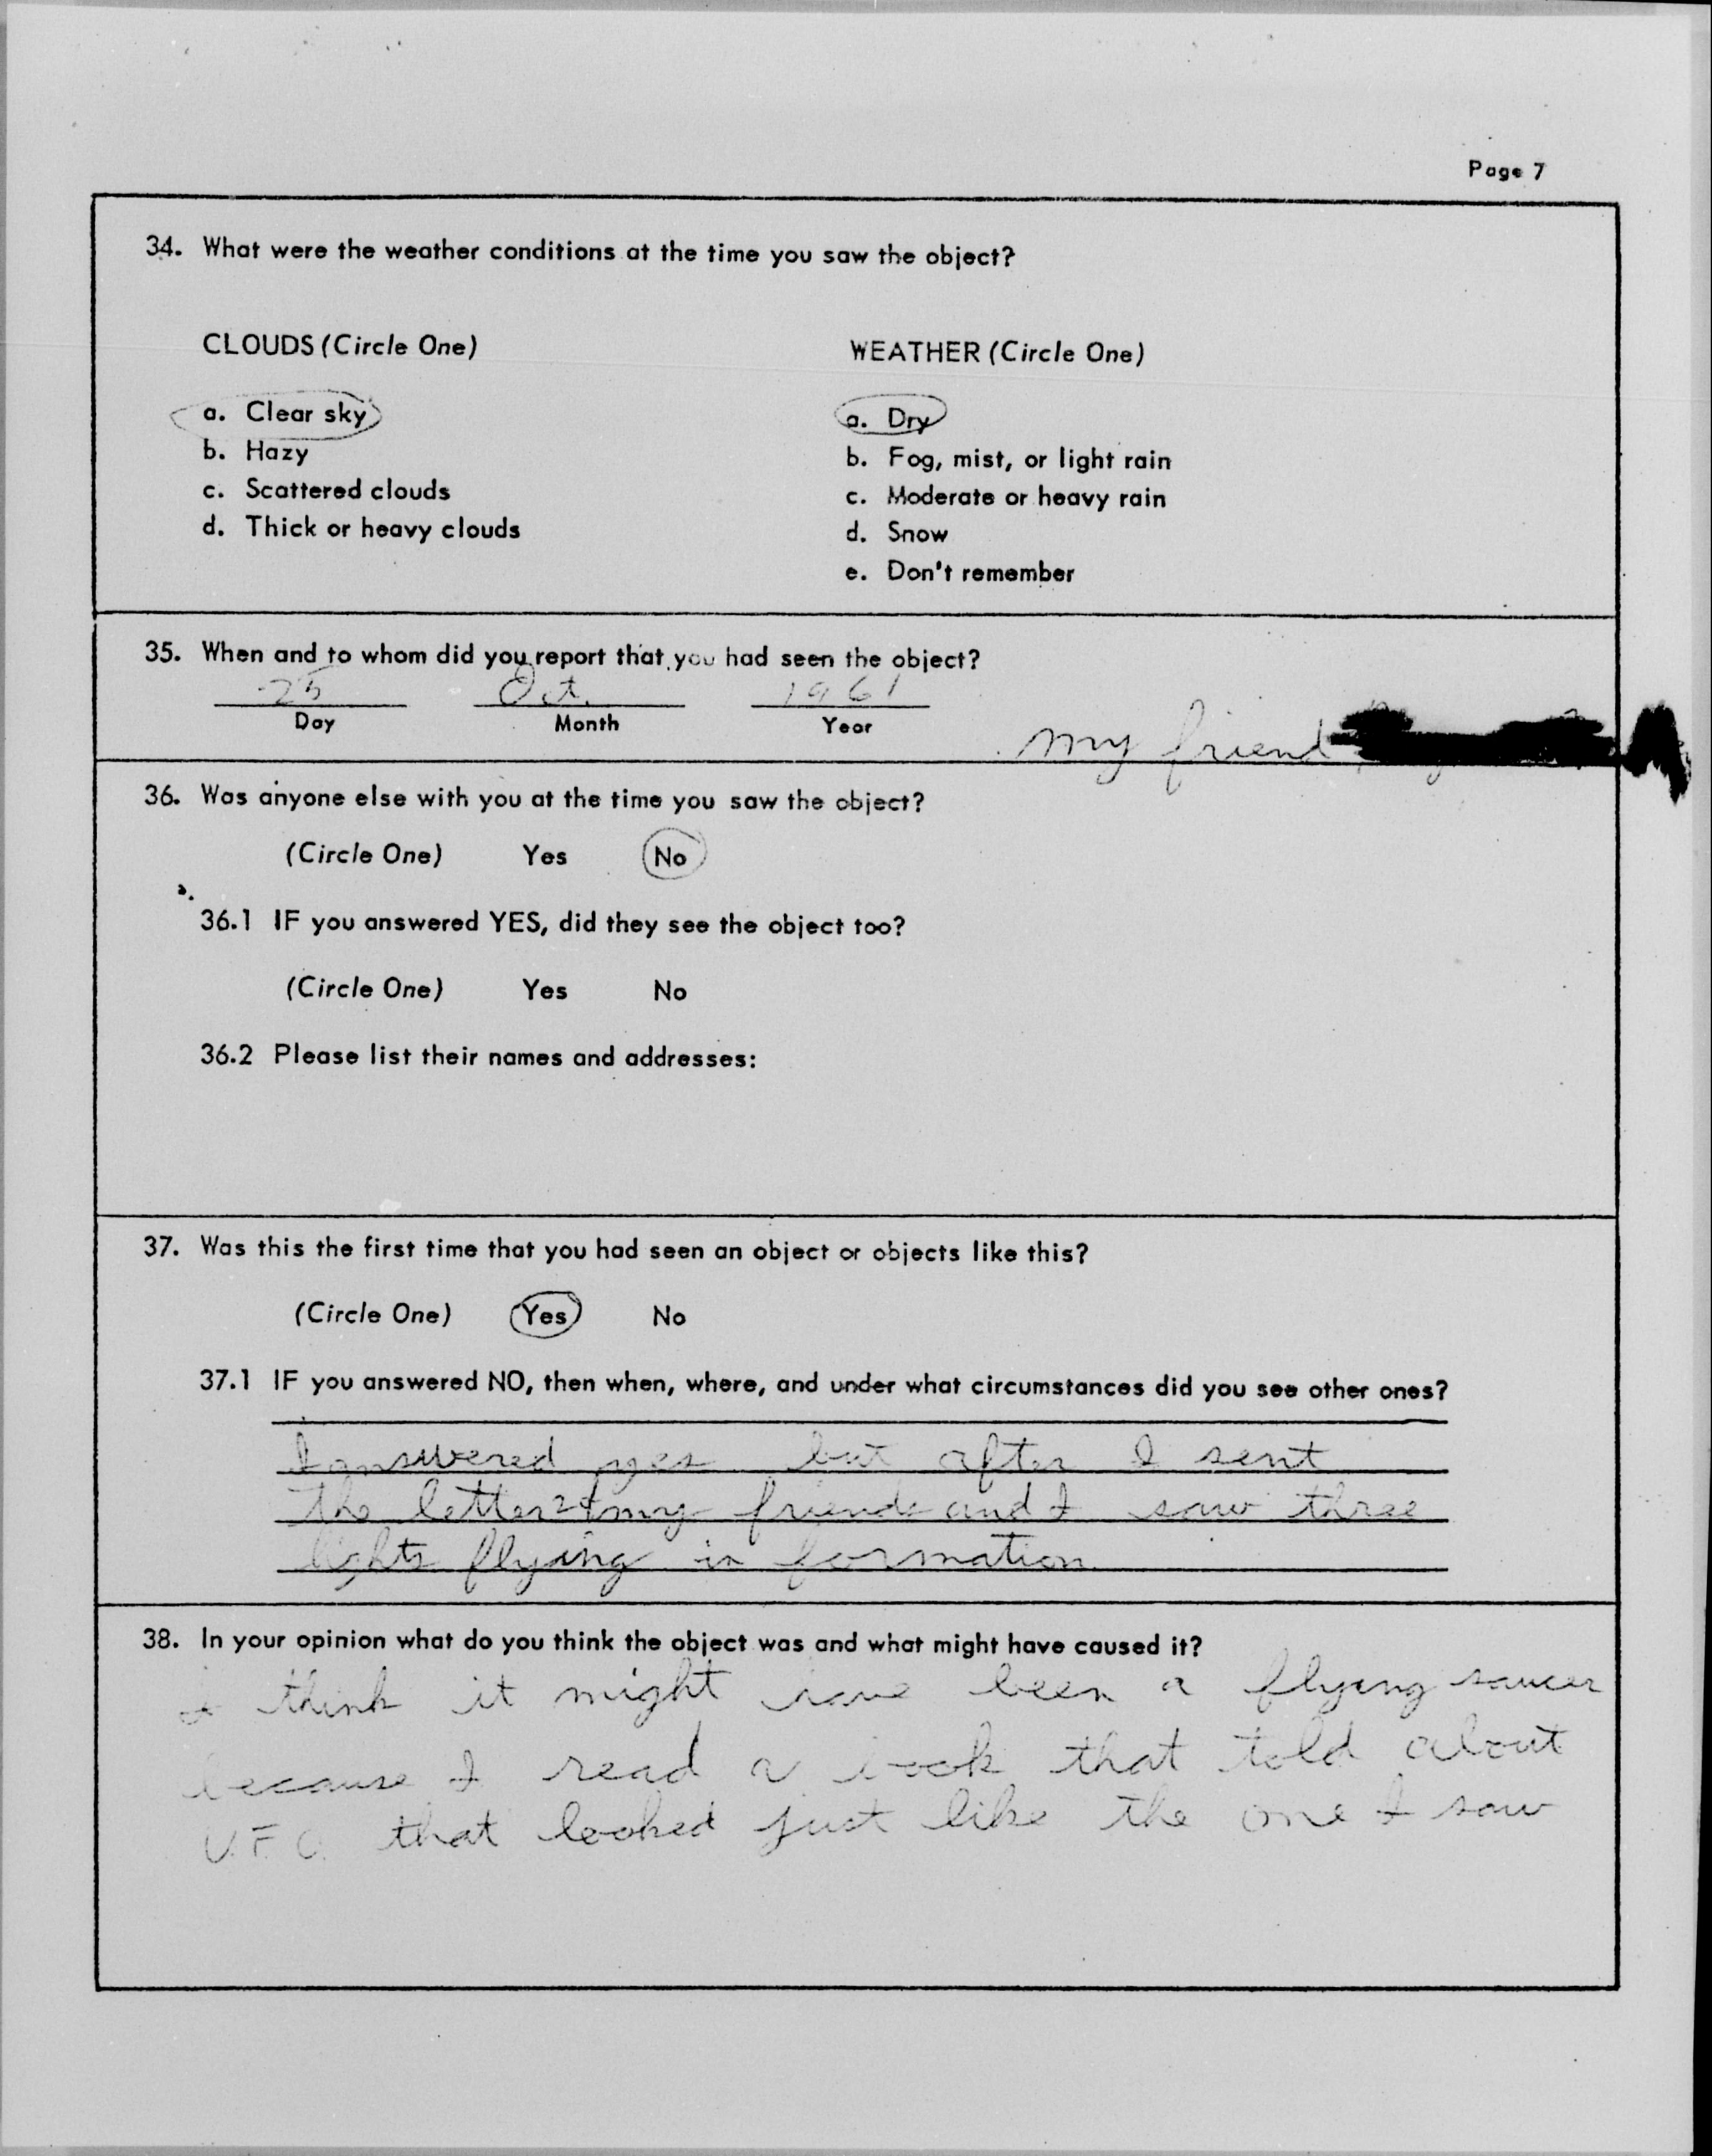 Page 7
34. What were the weather conditions at the time you saw the object?
CLOUDS (Circle One)
a. Clear sky
b. Hazy
c. Scattered clouds
d. Thick or heavy clouds
WEATHER (Circle One)
a. Dry
b. Fog, mist, or light rain
c. Moderate or heavy rain
d. Snow
e. Don't remember
35. When and to whom did you report that you had seen the object?
25 Oct. 1961
Day Month Year
my friend
36. Was anyone else with you at the time you saw the object?
(Circle One) Yes No
36.1 IF you answered YES, did they see the object too?
(Circle One) Yes No
36.2 Please list their names and addresses:
37. Was this the first time that you had seen an object or objects like this?
(Circle One) Yes No
37.1 IF you answered NO, then when, where, and under what circumstances did you see other ones?
I answered yes but after I sent
the letter 2 of my friends and I saw three
lights flying in formation.
38. In your opinion what do you think the object was and what might have caused it?
I think it might have been a flying saucer
because I read a book that told about
U.F.O. that looked just like the one I saw